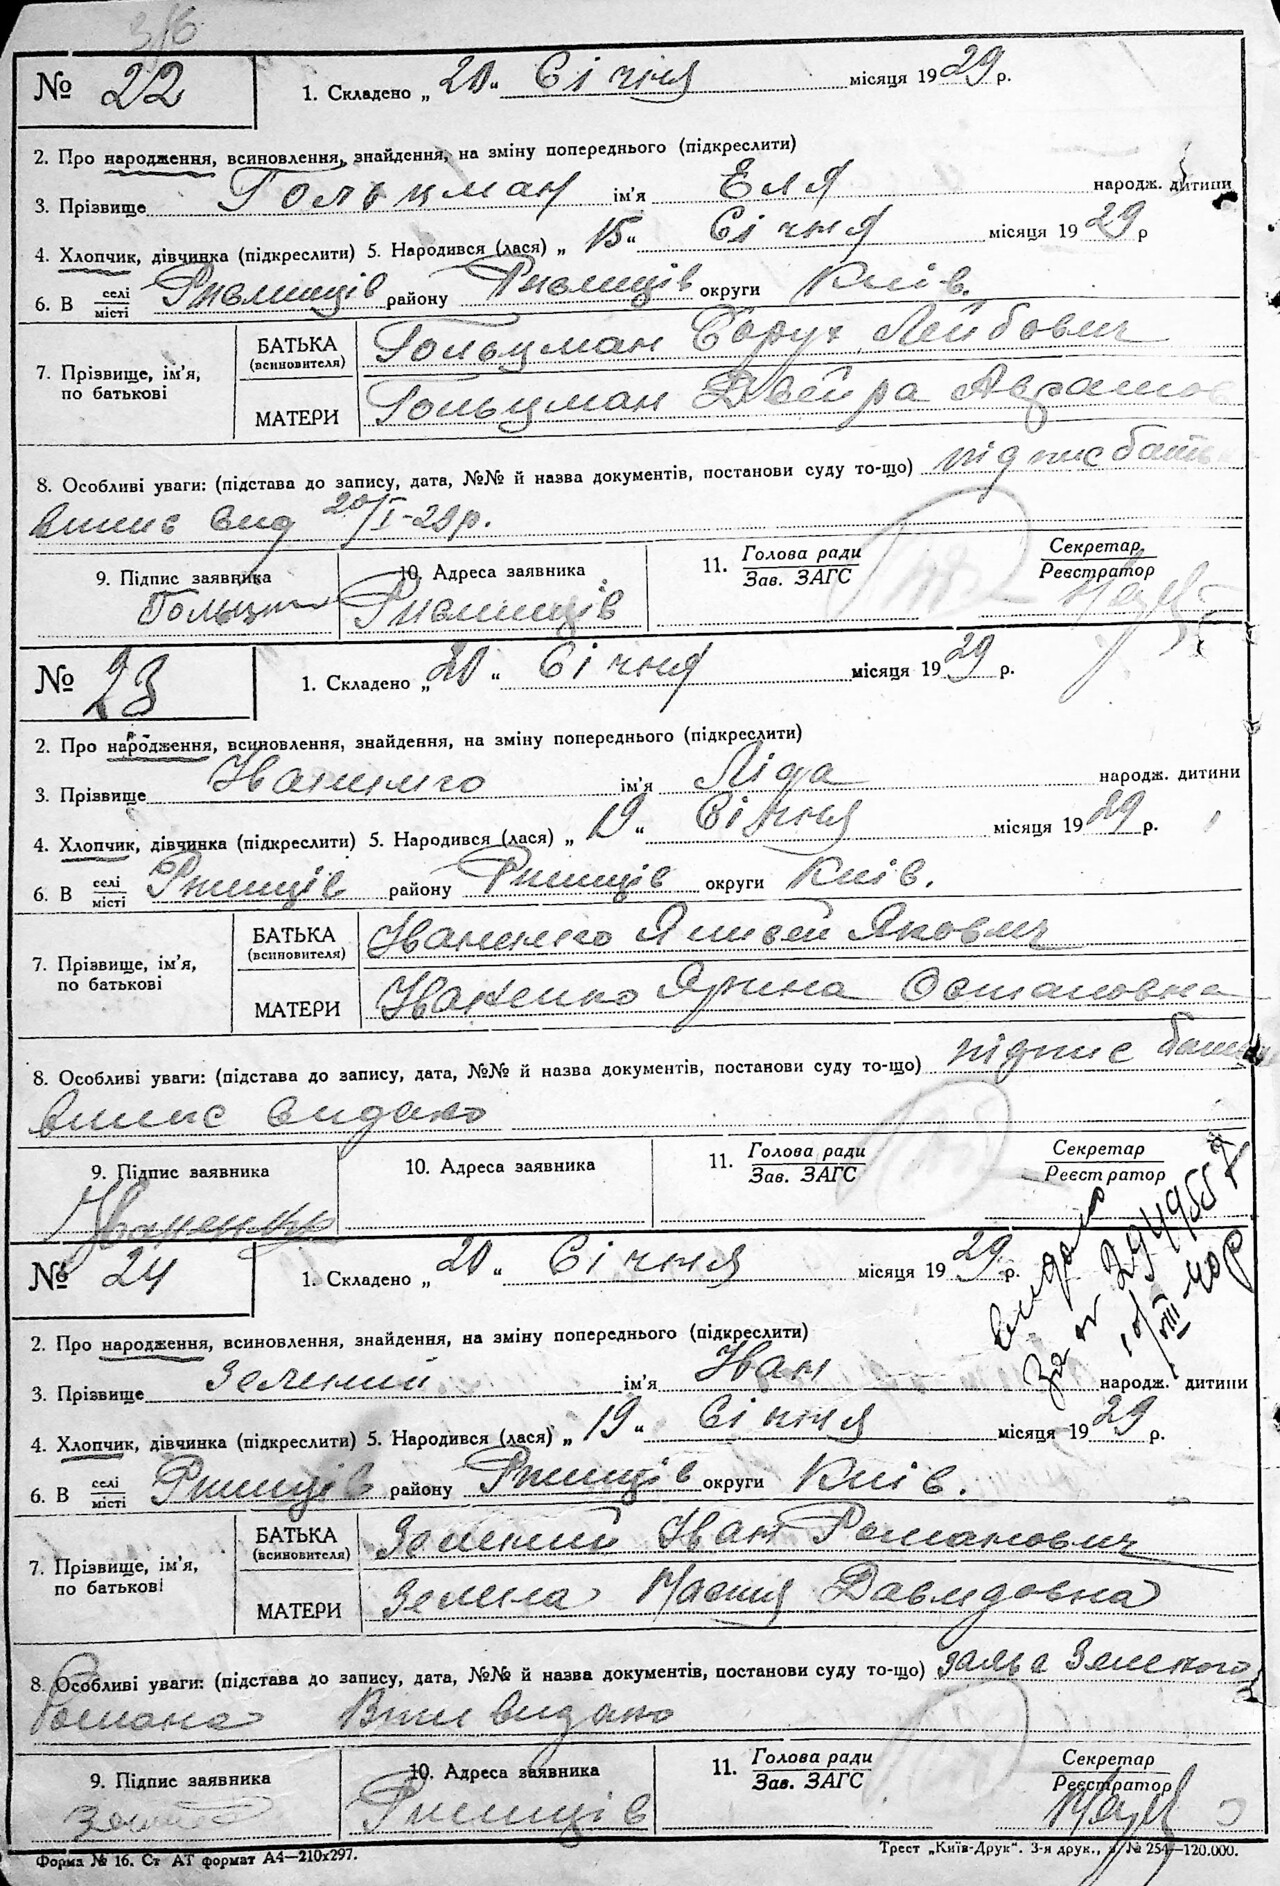 316
№ 22
1. Складено „ 20 “ Січня місяця 1929 р.
2. Про народження, всиновлення, знайдення, на зміну попереднього (підкреслити)
3. Прізвище Гольцман ім'я Еля народж. дитини
4. Хлопчик, дівчинка (підкреслити) 5. Народився (лася) „ 15 “ Січня місяця 1929 р
6. В селі/місті Ржищів району Ржищів округи Київ.
7. Прізвище, ім'я, по батькові
БАТЬКА (всиновителя) Гольцман Борух Лейбович
МАТЕРИ Гольцман Двейра Аврамов
8. Особливі уваги: (підстава до запису, дата, №№ й назва документів, постанови суду то-що) підпис батьк
випис вид 20/I-29р.
9. Підпис заявника 10. Адреса заявника 11. Голова ради/Зав. ЗАГС Секретар/Реєстратор
Гольцман Ржищів
№ 23
1. Складено „ 20 “ Січня місяця 1929 р.
2. Про народження, всиновлення, знайдення, на зміну попереднього (підкреслити)
3. Прізвище Іваненко ім'я Ліда народж. дитини
4. Хлопчик, дівчинка (підкреслити) 5. Народився (лася) „ 19 “ Січня місяця 1929 р.
6. В селі/місті Ржищів району Ржищів округи Київ.
7. Прізвище, ім'я, по батькові
БАТЬКА (всиновителя) Іваненко Якович
МАТЕРИ Іваненко Ярина Остаповна
8. Особливі уваги: (підстава до запису, дата, №№ й назва документів, постанови суду то-що) підпис батька
випис видано
9. Підпис заявника 10. Адреса заявника 11. Голова ради/Зав. ЗАГС Секретар/Реєстратор
Іваненко
№ 24
1. Складено „ 20 “ Січня місяця 1929 р.
видано
за №
VIII 40р
2. Про народження, всиновлення, знайдення, на зміну попереднього (підкреслити)
3. Прізвище Зелений ім'я Іван народж. дитини
4. Хлопчик, дівчинка (підкреслити) 5. Народився (лася) „ 19 “ Січня місяця 1929 р.
6. В селі/місті Ржищів району Ржищів округи Київ.
7. Прізвище, ім'я, по батькові
БАТЬКА (всиновителя) Зелений Іван Романович
МАТЕРИ Зелена Марія Давидовна
8. Особливі уваги: (підстава до запису, дата, №№ й назва документів, постанови суду то-що) заява Зеленого
Романа Випис видано
9. Підпис заявника 10. Адреса заявника 11. Голова ради/Зав. ЗАГС Секретар/Реєстратор
Ржищів
Форма № 16. Ст АТ формат А4—210х297.
Трест „Київ-Друк“. 3-я друк., з. № 254—120.000.